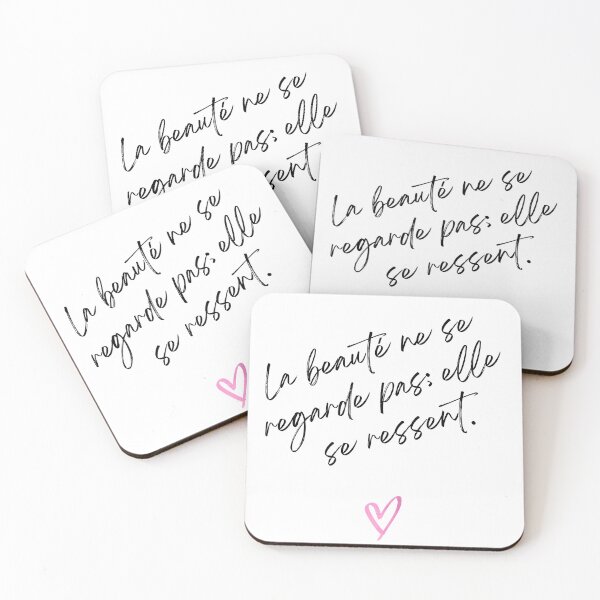 La beauté ne se
regarde pas; elle
ressent.
La beauté ne se
regarde pas; elle
se ressent.
La beauté ne se
regarde pas; elle
se ressent.
La beauté ne se
regarde pas; elle
se ressent.